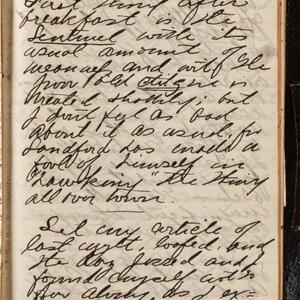 First thing after
breakfast is the
Sentinel with its
usual amount of
meanness and with the
poor old Citizen is
treated shabbily; but
I don't feel as bad
about it as usual, for
Sandford has made a
fool of himself in
"hawking" the thing
all over town.
Set my article of
last night, loafed, and
the day passed and I
found myself not so
far along, as ex-